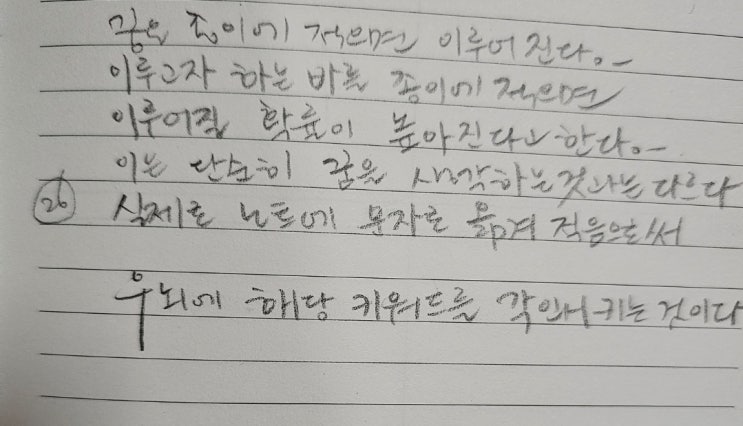 꿈은 종이에 적으면 이루어 진다.
이루고자 하는 바를 종이에 적으면
이루어질 확률이 높아진다고 한다.
이는 단순히 꿈을 생각하는것과는 다르다
26 실제로 노트에 문자로 옮겨 적음으로써
우뇌에 해당 키워드를 각인시키는 것이다